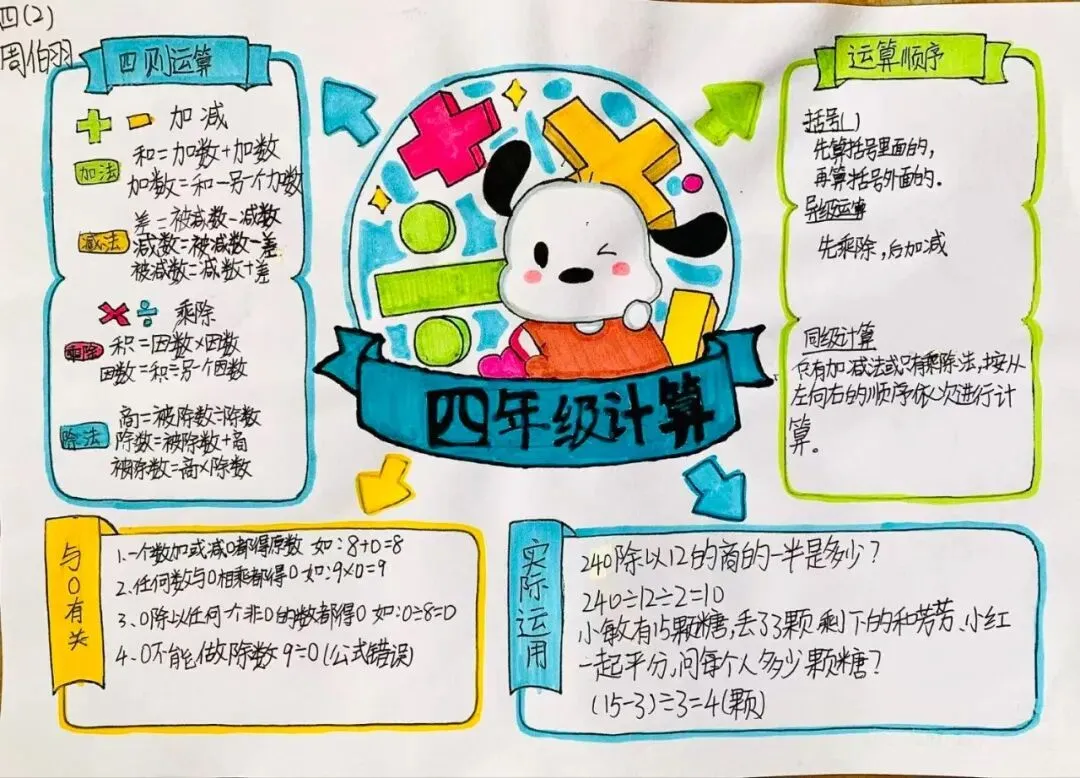 四(2)
周伯羽
四则运算
加减
加法
和=加数+加数
加数=和-另一个加数
减法
差=被减数-减数
减数=被减数-差
被减数=减数+差
乘除
乘除
积=因数×因数
因数=积÷另一个因数
除法
商=被除数÷除数
除数=被除数÷商
被除数=商×除数
四年级计算
运算顺序
括号( )
先算括号里面的,
再算括号外面的.
异级运算
先乘除,后加减
同级计算
只有加减法或只有乘除法,按从
左向右的顺序依次进行计
算。
与0有关
1.一个数加或减0都得原数 如:8+0=8
2.任何数与0相乘都得0 如:9×0=9
3、0除以任何一个非0的数都得0 如:0÷8=0
4、0不能做除数 9÷0(公式错误)
实际运用
240除以12的商的一半是多少?
240÷12÷2=10
小敏有15颗糖,丢了3颗剩下的和芳芳、小红
一起平分,问每个人多少颗糖?
(15-3)÷3=4(颗)